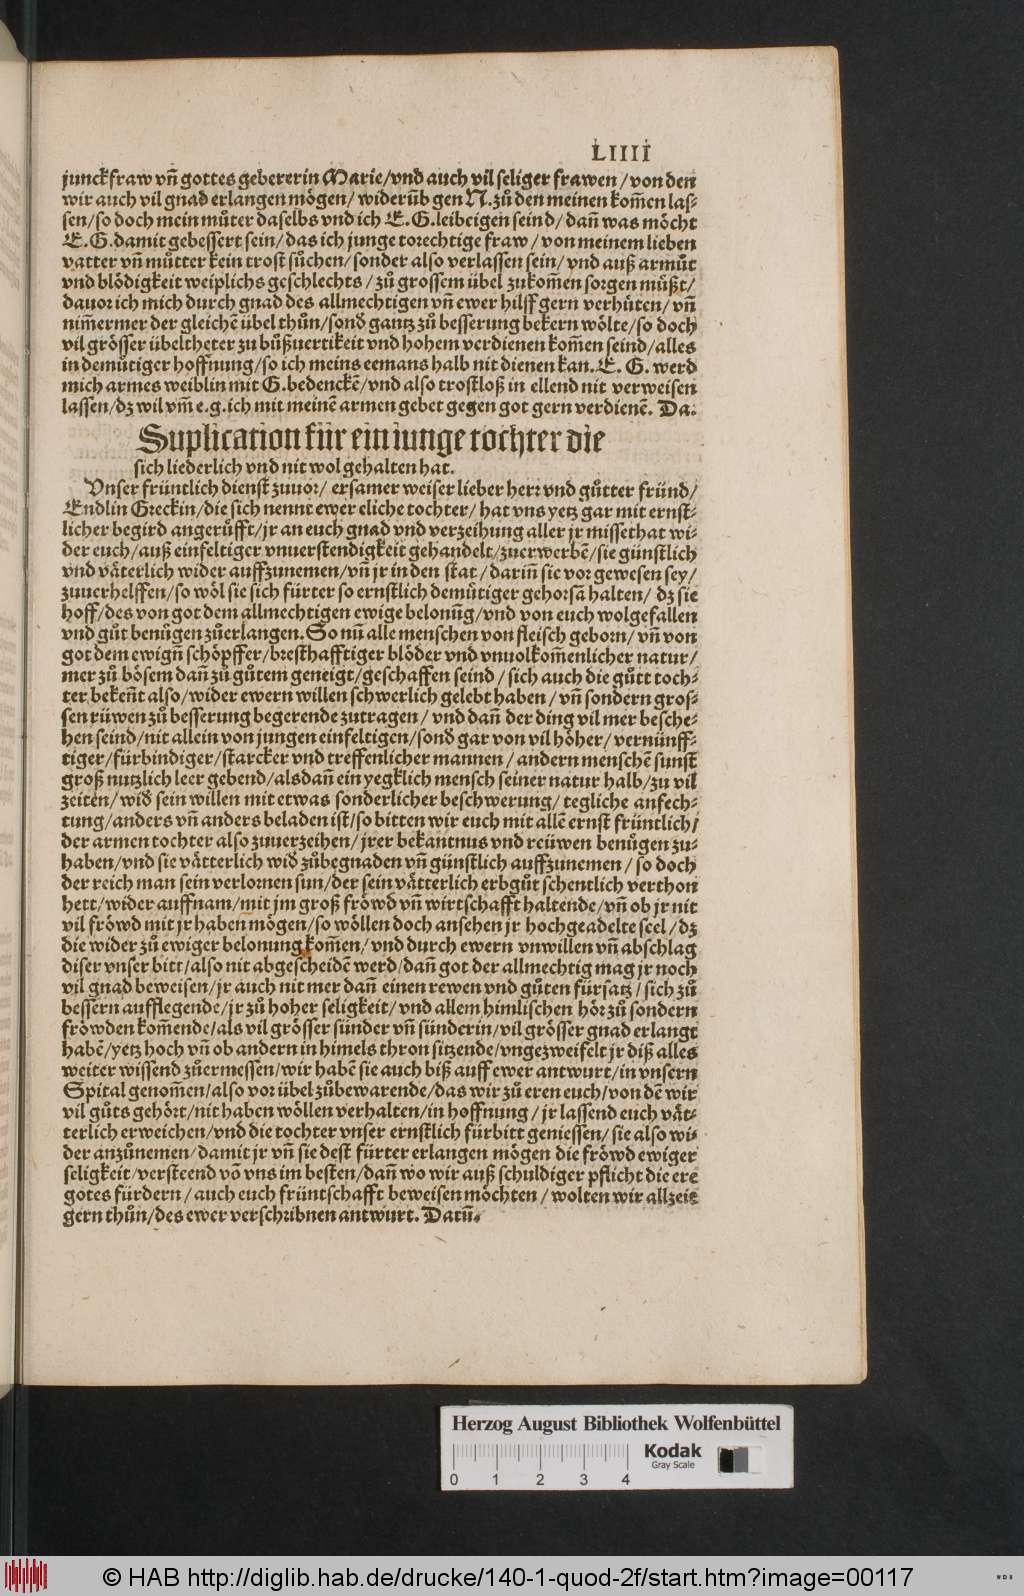 LIIII
junckfraw vñ gottes gebererin Marie/vnd auch vil seliger frawen/von den
wir auch vil gnad erlangen mögen/ widerüb gen N. zů den meinen kom̃en las⸗
sen/so doch mein můter daselbs vnd ich E. G. leibeigen seind/dañ was möcht
E. G. damit gebessert sein/das ich junge torechtige fraw/von meinem lieben
vatter vñ můtter kein trost sůchen/sonder also verlassen sein/vnd auß armůt
vnd blödigkeit weiplichs geschlechts/zů grossem übel zukom̃en sorgen můßt/
dauor ich mich durch gnad des allmechtigen vñ ewer hilff gern verhüten/vñ
nim̃ermer der gleichē übel thůn/sonđ gantz zů besserung bekern wölte/so doch
vil grösser übeltheter zu bůßuertikeit vnd hohem verdienen kom̃en seind/alles
in demütiger hoffnung/so ich meins eemans halb nit dienen kan. E. G. werd
mich armes weiblin mit G. bedenckē/vnd also trostloß in ellend nit verweisen
lassen/dz wil vm̃ e. g. ich mit meinē armen gebet gegen got gern verdienē. Da.
Suplication für ein iunge tochter die
sich liederlich vnd nit wol gehalten hat.
Vnser früntlich dienst zuuor/ ersamer weiser lieber herr vnd gůtter fründ/
Endlin Greckin/die sich nennt ewer eliche tochter/hat vns yetz gar mit ernst⸗
licher begird angerůfft/jr an euch gnad vnd verzeihung aller jr missethat wi⸗
der euch/auß einfeltiger vnuerstendigkeit gehandelt/zuerwerbē/sie günstlich
vnd väterlich wider auffzunemen/vñ jr in den stat/dariñ sie vor gewesen sey/
zuuerhelffen/so wöl sie sich fürter so ernstlich demütiger gehorsā halten/ dz sie
hoff/des von got dem allmechtigen ewige belonūg/vnd von euch wolgefallen
vnd gůt benügen zůerlangen. So nun̄ alle menschen von fleisch geborn/vñ von
got dem ewigñ schöpffer/bresthafftiger blöder vnd vnuolkom̃enlicher natur/
mer zů bösem dañ zů gůtem geneigt/geschaffen seind/sich auch die gůtt toch⸗
ter bekeñt also/wider ewern willen schwerlich gelebt haben/vñ sondern gros⸗
sen rüwen zů besserung begerende zutragen/vnd dañ der ding vil mer besche⸗
hen seind/nit allein von jungen einfeltigen/sonđ gar von vil höher/vernünff⸗
tiger/fürbindiger/starcker vnd treffenlicher mannen/andern menschē sunst
groß nutzlich leer gebend/alsdañ ein yegklich mensch seiner natur halb/zu vil
zeiten/wiđ sein willen mit etwas sonderlicher beschwerung/tegliche anfech⸗
tung/anders vñ anders beladen ist/so bitten wir euch mit allē ernst früntlich/
der armen tochter also zuuerzeihen/jrer bekantnus vnd reüwen benůgen zu⸗
haben/vnd sie vätterlich wiđ zůbegnaden vñ günstlich auffzunemen/so doch
der reich man sein verlornen sun/der sein vätterlich erbgůt schentlich verthon
hett/wider auffnam/mit jm groß fröwd vñ wirtschafft haltende/vñ ob jr nit
vil fröwd mit jr haben mögen/so wöllen doch ansehen jr hochgeadelte seel/dz
die wider zů ewiger belonung kom̃en/vnd durch ewern vnwillen vñ abschlag
diser vnser bitt/also nit abgescheidē werd/dañ got der allmechtig mag jr noch
vil gnad beweisen/jr auch nit mer dañ einen rewen vnd gůten fürsatz/sich zů
bessern aufflegende/jr zů hoher seligkeit/vnd allem himlischen hör zů sondern
fröwden kom̃ende/als vil grösser sünder vñ sünderin/vil grösser gnad erlangt
habē/yetz hoch vñ ob andern in himels thron sitzende/vngezweifelt jr diß alles
weiter wissend zůermessen/wir habē sie auch biß auff ewer antwurt/in vnsern
Spital genom̃en/also vor übel zůbewarende/das wir zů eren euch/von dē wir
vil gůts gehört/nit haben wöllen verhalten/in hoffnung/jr lassend euch vät⸗
terlich erweichen/vnd die tochter vnser ernstlich fürbitt geniessen/sie also wi⸗
der anzůnemen/damit jr vñ sie dest fürter erlangen mögen die fröwd ewiger
seligkeit/versteend vō vns im besten/dañ wo wir auß schuldiger pflicht die ere
gotes fürdern/auch euch früntschafft beweisen möchten/wolten wir allzeit
gern thůn/des ewer verschribnen antwurt. Datū.
Herzog August Bibliothek Wolfenbüttel
0 1 2 3 4
Kodak
Gray Scale
© HAB http://diglib.hab.de/drucke/140-1-quod-2f/start.htm?image=00117